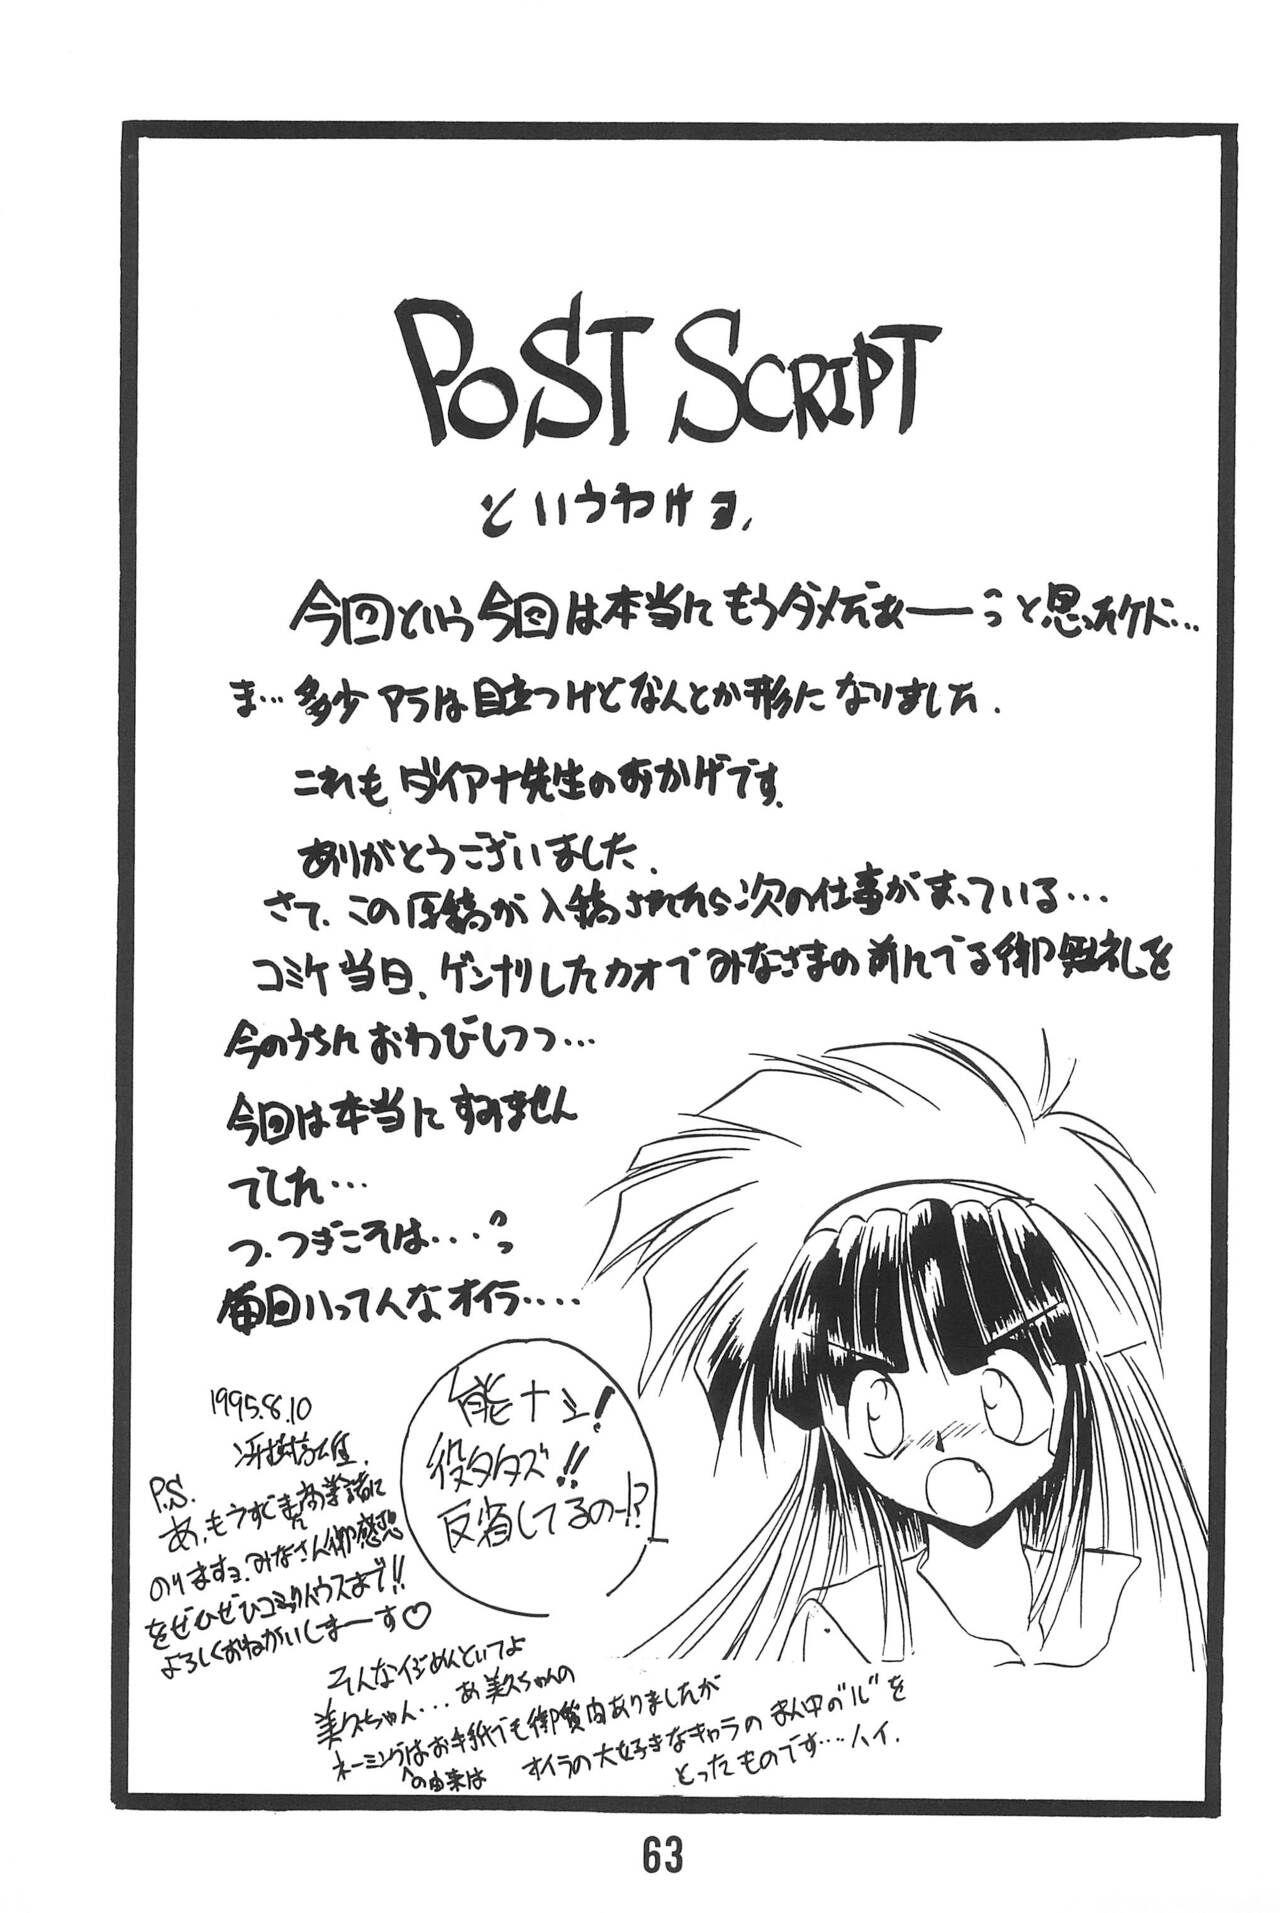 POST SCRIPT
というわけヨ.
今回という今回は本当にもうダメだぁーーーっと思ったケド…
ま…多少アラは目立つけどなんとか形になりました.
これもダイアナ先生のおかげです.
ありがとうございました.
さて、この原稿が入稿されたら次の仕事がまっている…
コミケ当日、ゲンナリしたカオでみなさまの前にでる御無礼を
今のうちにおわびしつつ…
今回は本当にすみません
でした…
つ、つぎこそは…っ
毎回いってんなオイラ….
1995.8.10
冴樹高雄.
能ナシ!
役タタズ!!
反省してるのー!?
P.S.
あ、もうすぐまた商業誌に
のりますヨ.みなさん御感想
をぜひぜひコミックハウスまで!!
よろしくおねがいしまーーす♡
そんなイジめんといてよ
美久ちゃん…あ美久ちゃんの
ネーミングの由来はお手紙でも御質問ありましたが
オイラの大好きなキャラのまん中の"ル"を
とったものです…ハイ.
63